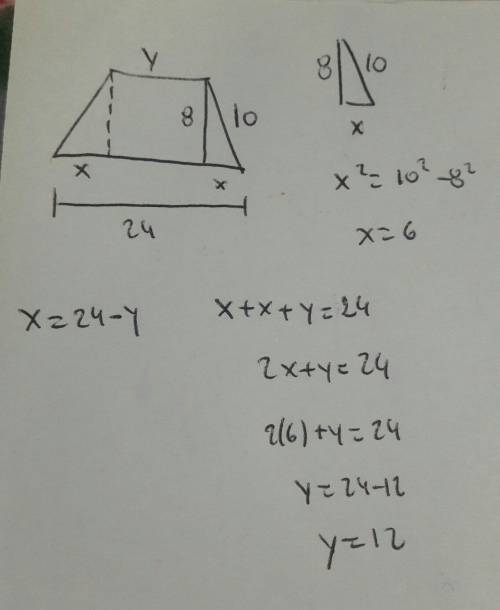 y
8 10
x x
24
8 10
x
x² = 10² - 8²
x = 6
x = 24 - y
x + x + y = 24
2x + y = 24
2(6) + y = 24
y = 24 - 12
y = 12